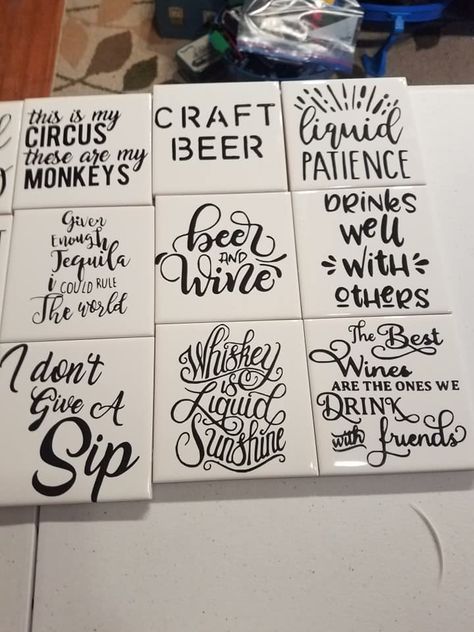 this is my
CIRCUS
these are my
MONKEYS
CRAFT
BEER
liquid
PATIENCE
Given
Enough
Tequila
i COULD RULE
The world
beer
AND
Wine
DRiNKS
WEll
WiTH
OTHERS
I don't
Give A
Sip
Whiskey
is
Liquid
Sunshine
The Best
Wines
ARE THE ONES WE
DRINK
with friends